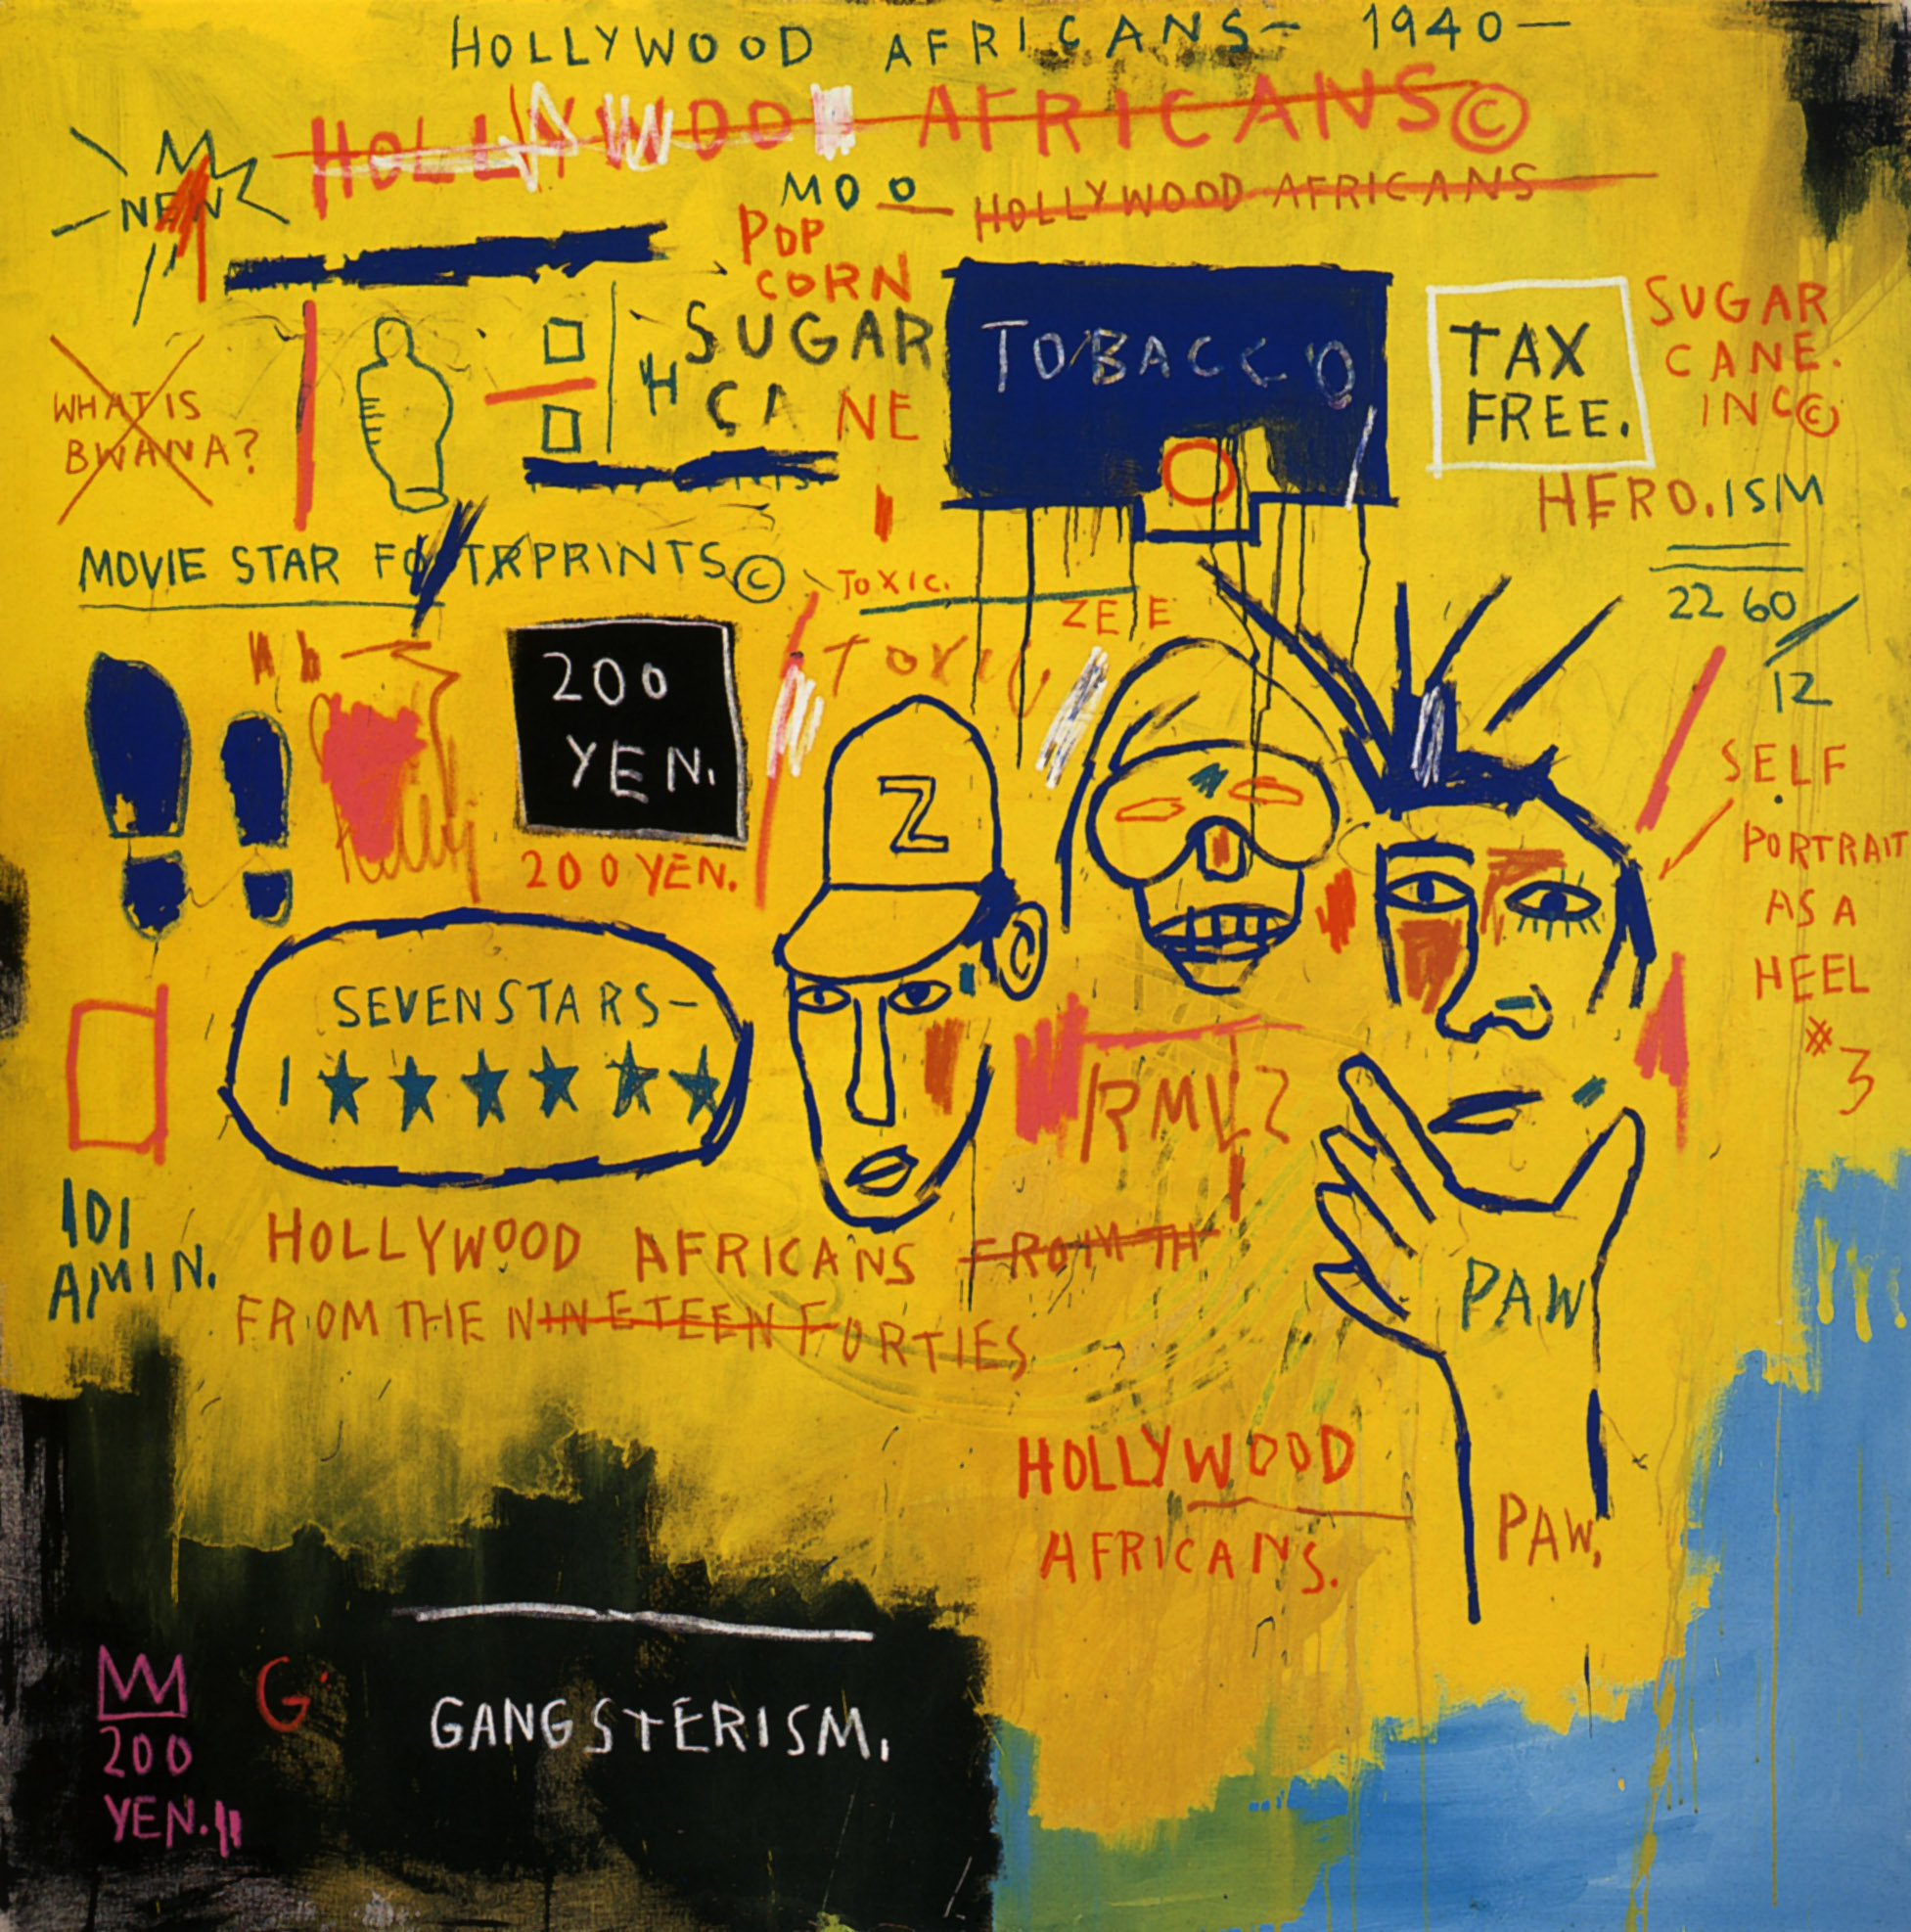 HOLLYWOOD AFRICANS- 1940-
HOLLYWOOD AFRICANS©
MOO
HOLLYWOOD AFRICANS
NEW
POP
CORN
SUGAR
CANE
TOBACCO
TAX
FREE.
SUGAR
CANE.
INC©
WHAT IS
BWANA?
HERO.ISM
MOVIE STAR FOOTPRINTS©
TOXIC.
ZEE
2260
12
TOXIC
200
YEN.
200 YEN.
Z
SELF
PORTRAIT
AS A
HEEL
#3
SEVEN STARS-
1★★★★★★
RMLZ
IDI
AMIN.
HOLLYWOOD AFRICANS FROM TH
FROM THE NINETEEN FORTIES
PAW
HOLLYWOOD
AFRICANS.
PAW,
200
YEN.
G
GANGSTERISM.